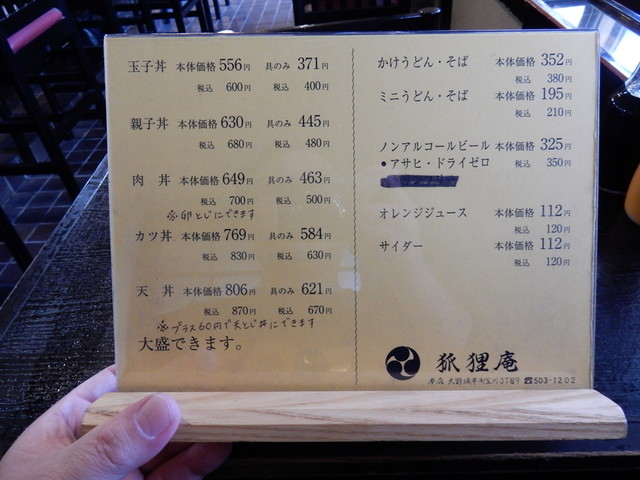 玉子丼 本体価格 556円 具のみ 371円
税込 600円 税込 400円
親子丼 本体価格 630円 具のみ 445円
税込 680円 税込 480円
肉 丼 本体価格 649円 具のみ 463円
税込 700円 税込 500円
※卵とじにできます
カツ丼 本体価格 769円 具のみ 584円
税込 830円 税込 630円
天 丼 本体価格 806円 具のみ 621円
税込 870円 税込 670円
※プラス60円で天とじ丼にできます
大盛できます。
かけうどん・そば 本体価格 352円
税込 380円
ミニうどん・そば 本体価格 195円
税込 210円
ノンアルコールビール 本体価格 325円
●アサヒ・ドライゼロ 税込 350円
オレンジジュース 本体価格 112円
税込 120円
サイダー 本体価格 112円
税込 120円
狐狸庵
本店 大野城市御笠川3丁目9 ☎503-1202